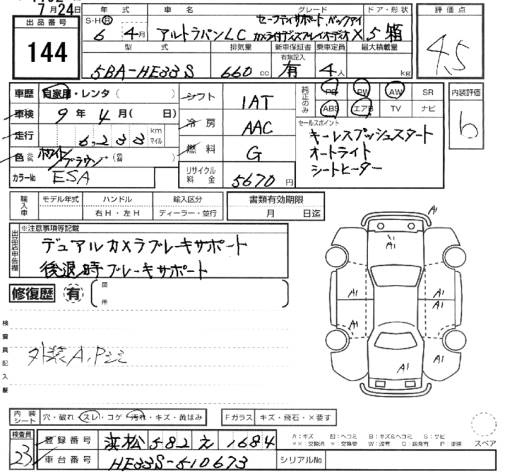 7月24日
出品番号
144
年式 車名 グレード ドア・形状 評価点
S・H・R 6年4月 アルトラパンLC セーフティサポート、バックアイ
カメラ付ディスプレイオーディオX 5 箱 4.5
型式 排気量 新車保証書 乗車定員 最大積載量
有無記入
5BA-HE33S 660cc 有 4人 kg
車歴 自家用・レンタ( ) シフト 1AT 純正のみ PS PW AW SR 内装評価
ABS エアB TV ナビ b
車検 9年4月( 日) 冷房 AAC セールスポイント
走行 6,233 km マイル 燃料 G キーレスプッシュスタート
オートライト
シートヒーター
色 ホワイト/ブラウン リサイクル料金 5670円
カラーNo ESA
輸入車 モデル年式 ハンドル 輸入区分 書類有効期限
年 右H・左H ディーラー・並行 月 日迄
出品店申告欄 ※注意事項等記載
デュアルカメラブレーキサポート
後退時ブレーキサポート
修復歴 有 箇所
検査員記入欄
外装A,Pシミ
A1
A1
A1 A1
A1 A1
A1
内装シート 穴・破れ・スレ・コゲ・汚れ・キズ・黄ばみ Fガラス キズ・飛石・X要す
検査員 23
登録番号 浜松 582 え 1684
車台番号 HE33S-510673 シリアルNo
スペア